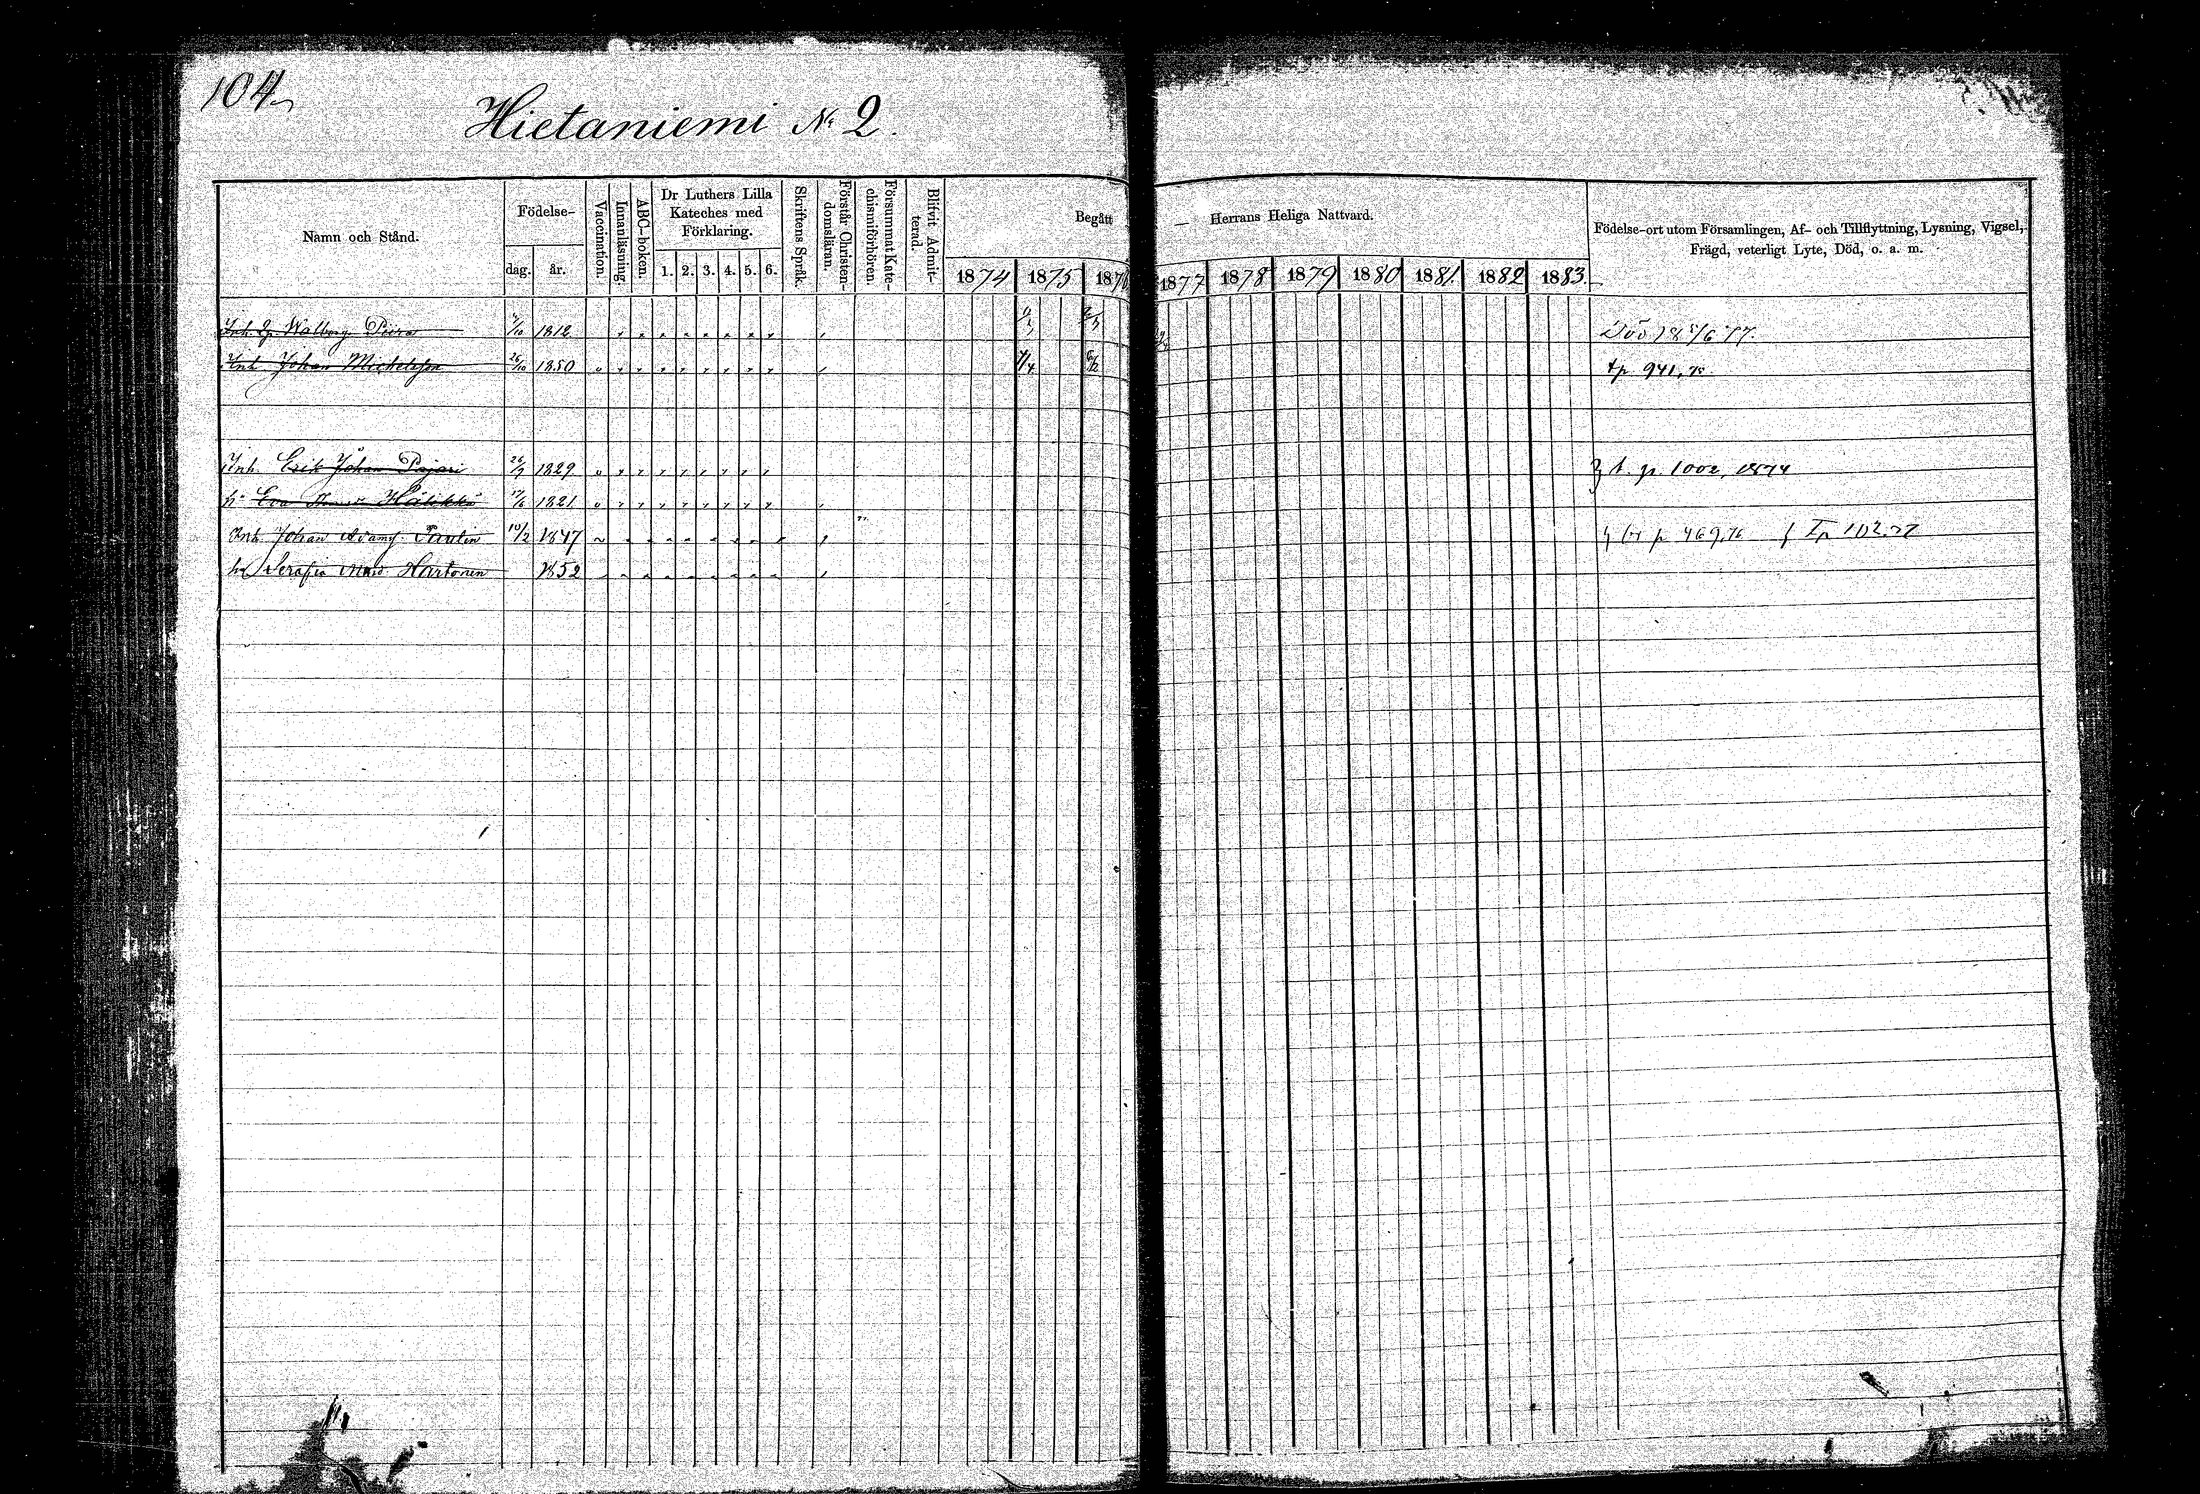 104
Hietaniemi No 2.
Namn och Stånd. Födelse- dag. år. Vaccination. Innanläsning. ABC-boken. Dr Luthers Lilla Kateches med Förklaring. 1. 2. 3. 4. 5. 6. Skriftens Språk. Förstår Christendomsläran. Försummat Katechismiförhören. Blifvit Admitterad. Begått — Herrans Heliga Nattvard. 1874 1875 1876 1877 1878 1879 1880 1881. 1882 1883. Födelse-ort utom Församlingen, Af- och Tillflyttning, Lysning, Vigsel, Frägd, veterligt Lyte, Död, o. a. m.
Inh. Walborg 1812 Död 18 5/6 77.
Inh. Johan Mickelsson 26/10 1850 tp 941,
Inh. Erik Johan Pajari 26/7 1829 t. p. 1002, 1874
Eva 17/6 1821
Inh. Johan Adamss. Paulin 10/2 1847 p 469,76
Serafia Hartonen 1852